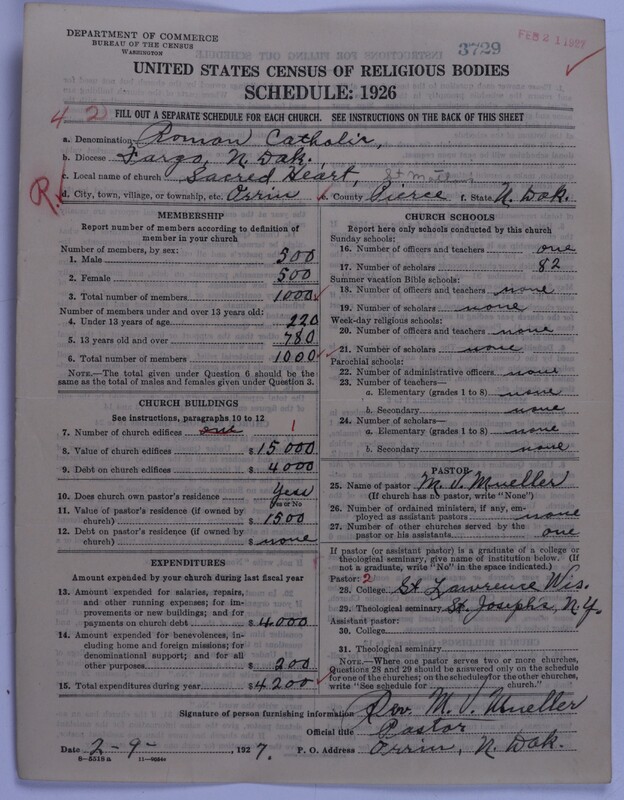 DEPARTMENT OF COMMERCE
BUREAU OF THE CENSUS
WASHINGTON
3729
FEB 21 1927
UNITED STATES CENSUS OF RELIGIOUS BODIES
SCHEDULE: 1926
4 2
FILL OUT A SEPARATE SCHEDULE FOR EACH CHURCH. SEE INSTRUCTIONS ON THE BACK OF THIS SHEET
a. Denomination Roman Catholic,
b. Diocese Fargo, N. Dak.
c. Local name of church Sacred Heart,
R.
d. City, town, village, or township, etc. Orrin e. County Pierce f. State N. Dak.
MEMBERSHIP
Report number of members according to definition of member in your church
Number of members, by sex:
1. Male 500
2. Female 500
3. Total number of members 1000
Number of members under and over 13 years old:
4. Under 13 years of age 220
5. 13 years old and over 780
6. Total number of members 1000
NOTE.—The total given under Question 6 should be the same as the total of males and females given under Question 3.
CHURCH BUILDINGS
See instructions, paragraphs 10 to 12
7. Number of church edifices one 1
8. Value of church edifices $ 15 000
9. Debt on church edifices $ 4000
10. Does church own pastor's residence Yes
Yes or No
11. Value of pastor's residence (if owned by church) $ 1500
12. Debt on pastor's residence (if owned by church) $ none
EXPENDITURES
Amount expended by your church during last fiscal year
13. Amount expended for salaries, repairs, and other running expenses; for improvements or new buildings; and for payments on church debt $ 4000
14. Amount expended for benevolences, including home and foreign missions; for denominational support; and for all other purposes $ 200
15. Total expenditures during year $ 4200
CHURCH SCHOOLS
Report here only schools conducted by this church
Sunday schools:
16. Number of officers and teachers one
17. Number of scholars 82
Summer vacation Bible schools:
18. Number of officers and teachers none
19. Number of scholars none
Week-day religious schools:
20. Number of officers and teachers none
21. Number of scholars none
Parochial schools:
22. Number of administrative officers none
23. Number of teachers—
a. Elementary (grades 1 to 8) none
b. Secondary none
24. Number of scholars—
a. Elementary (grades 1 to 8) none
b. Secondary none
PASTOR
25. Name of pastor M. V. Mueller
(If church has no pastor, write "None")
26. Number of ordained ministers, if any, employed as assistant pastors none
27. Number of other churches served by the pastor or his assistants one
If pastor (or assistant pastor) is a graduate of a college or theological seminary, give name of institution below. (If not a graduate, write "No" in the space indicated.)
Pastor: 2
28. College St Lawrence Wis.
29. Theological seminary St. Josephs, N.Y.
Assistant pastor:
30. College
31. Theological seminary
NOTE.—Where one pastor serves two or more churches, Questions 28 and 29 should be answered only on the schedule for one of the churches; on the schedules for the other churches, write "See schedule for church."
Signature of person furnishing information Rev. M. V. Mueller
Official title Pastor
Date 2-9-, 1927. P. O. Address Orrin, N. Dak.
8-5518a